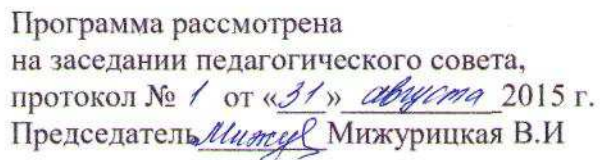 Программа рассмотрена
на заседании педагогического совета,
протокол № 1 от «31» августа 2015 г.
Председатель Мижур Мижурицкая В.И